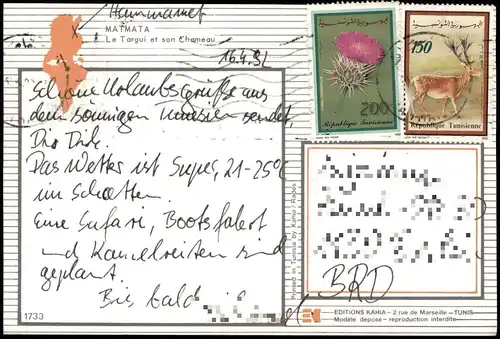 Hammamet
MATMATA
Le Targui et son Chameau
16.4.91
Schöne Urlaubsgrüße aus
dem sonnigen Tunesien sendet
Dir Dirk.
Das Wetter ist Super, 21-25°C
im Schatten.
Eine Safari, Bootsfahrt
und Kamelreiten sind
geplant.
Bis bald
1733
الجمهورية التونسية
200
République Tunisienne
الجمهورية التونسية
150
République Tunisienne
Printed in Tunisia by Kahia / Rades
BRD
EDITIONS KAHIA - 2 rue de Marseille - TUNIS
Modèle déposé - reproduction interdite